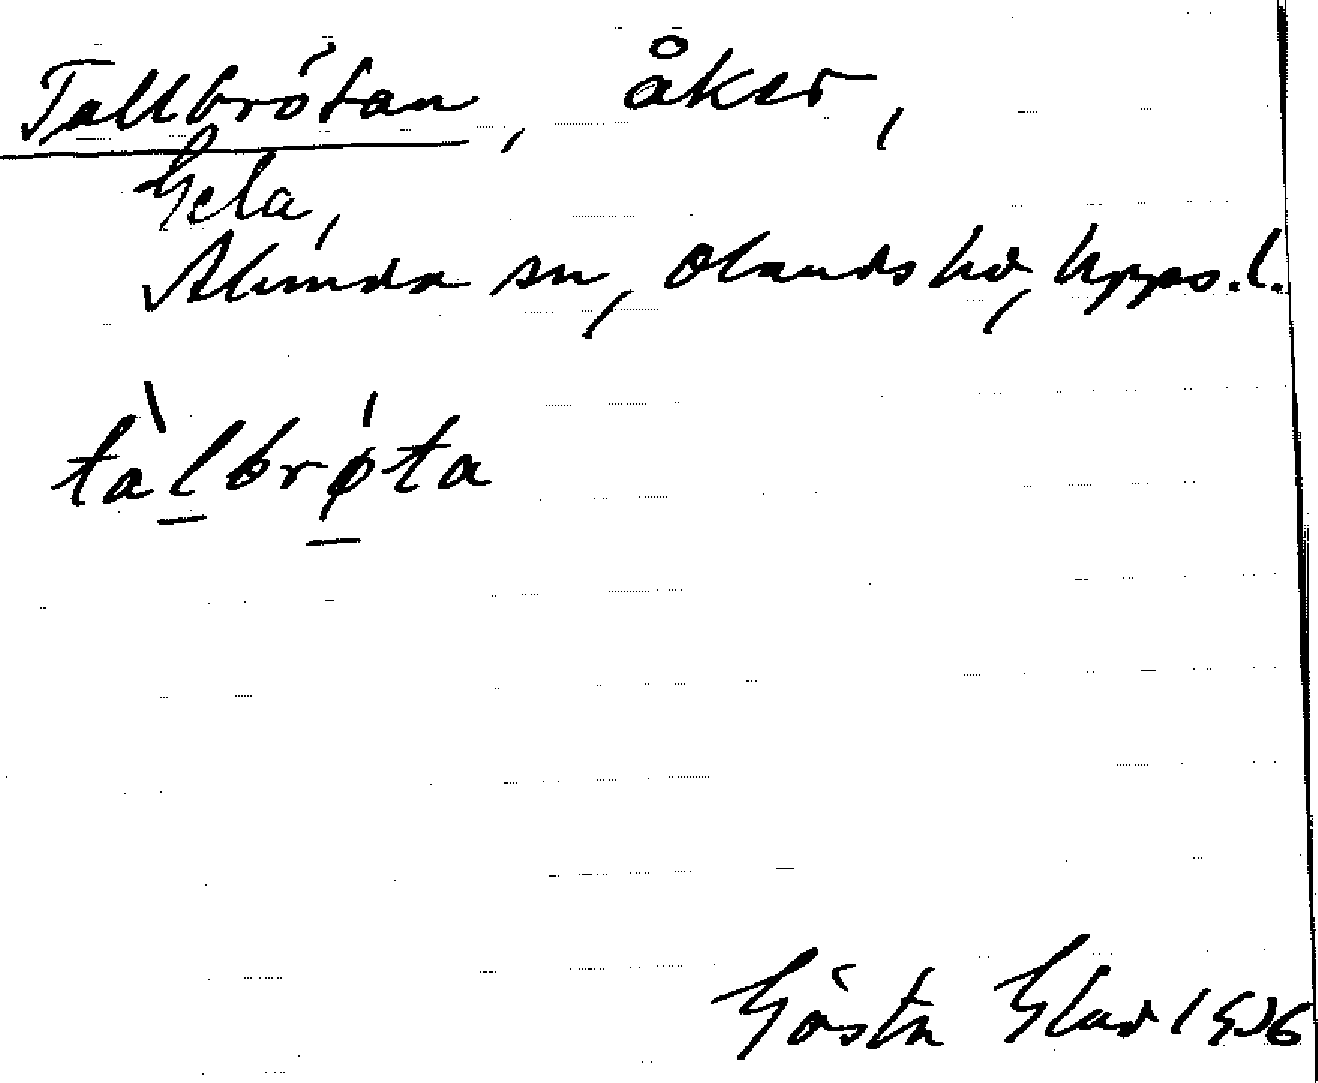 Tallbrötan, åker,
Gela,
Alunda sn, Olands hd, Upps. l.
tàlbrǿta
Gösta Glad 1936